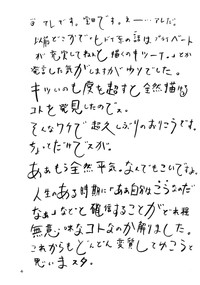 です。宮田です。え……アレだ。
以前どこかでもしてた話はプライベート
が充実してねぇと描くのキツーい。とか
発言した気がしますがウソでした。
キツいのも度を超すと全然描ける
コトを発見したのでス。
そんなワケで超久しぶりのおりこうです。
ちょっとだけでスが。
ああもう全然平気。なんでもこいですよ。
人生のある時期に「ああ自分はこうなのだ
なぁ」などと確信することがどれ程
無意味なコトなのか解りました。
これからもどんどん変質してゆこうと
思いまスタ。